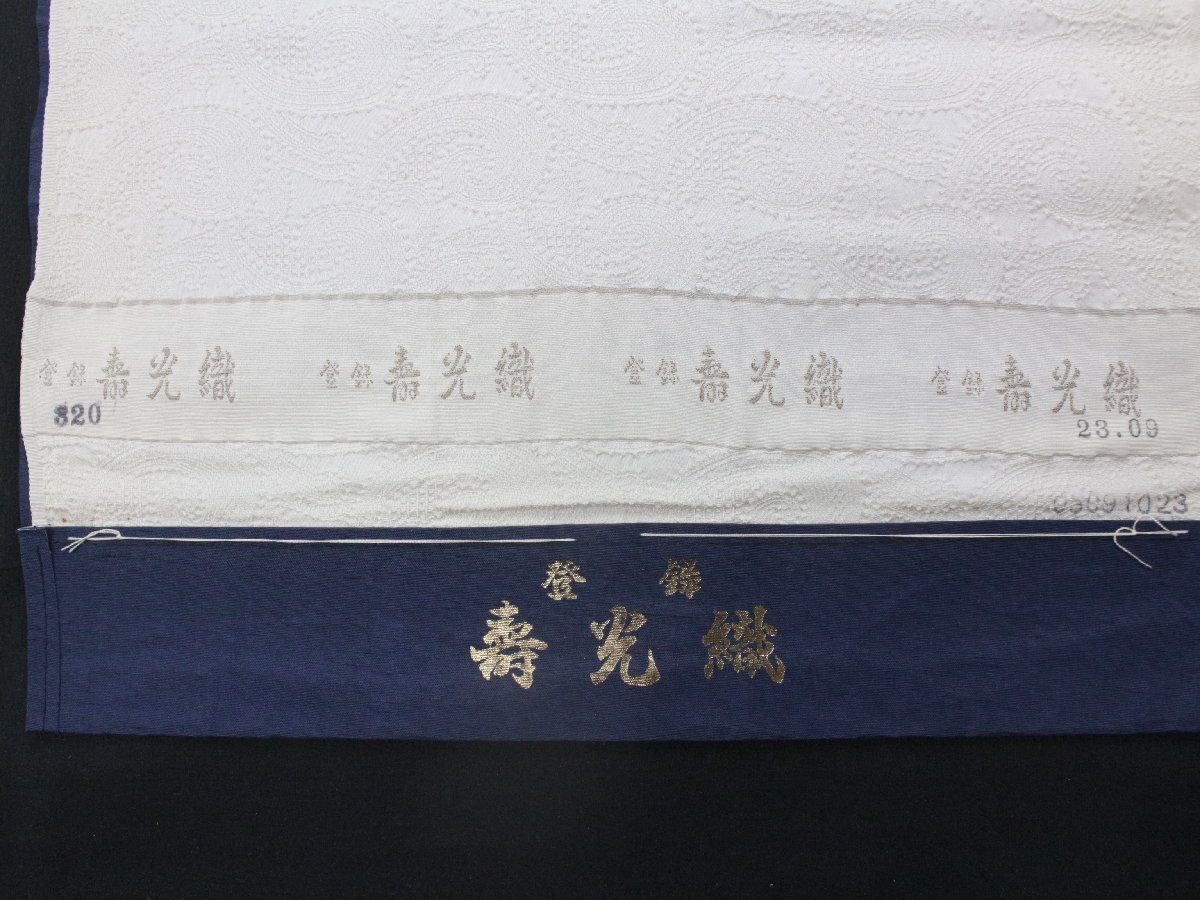 登録 壽光織 登録 壽光織 登録 壽光織 登録 壽光織
820
23.09
登録
壽光織